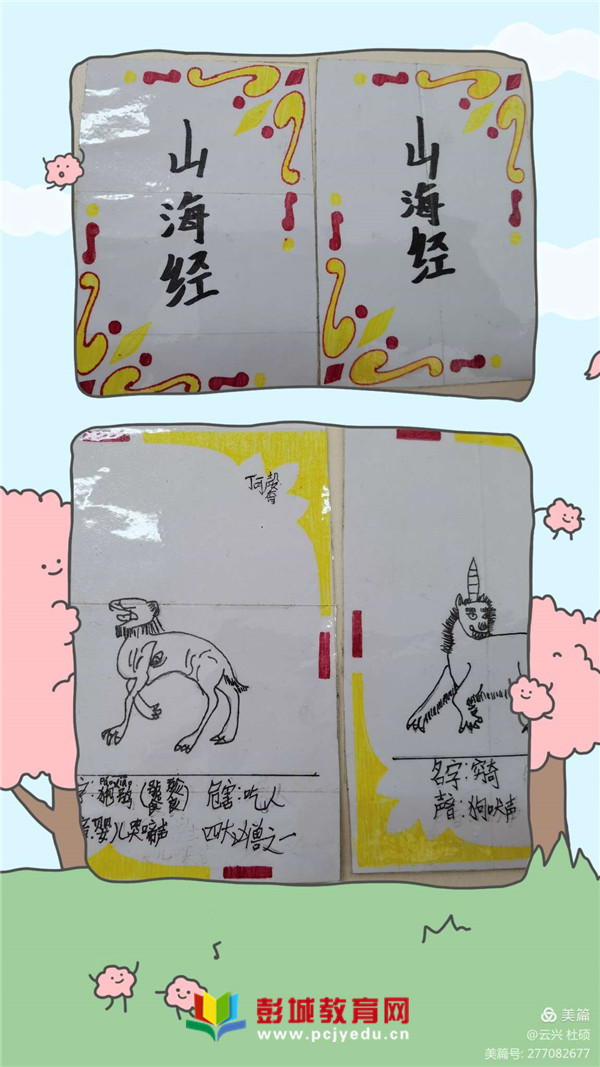 山海经
山海经
丁可馨
páo xiāo
字:狍鸮(饕餮) 危害:吃人
音:婴儿哭啼声 四大凶兽之一
名字:穷奇
聲:狗吠声
彭城教育网
www.pcjyedu.cn
美篇
@云兴 杜硕
美篇号: 277082677